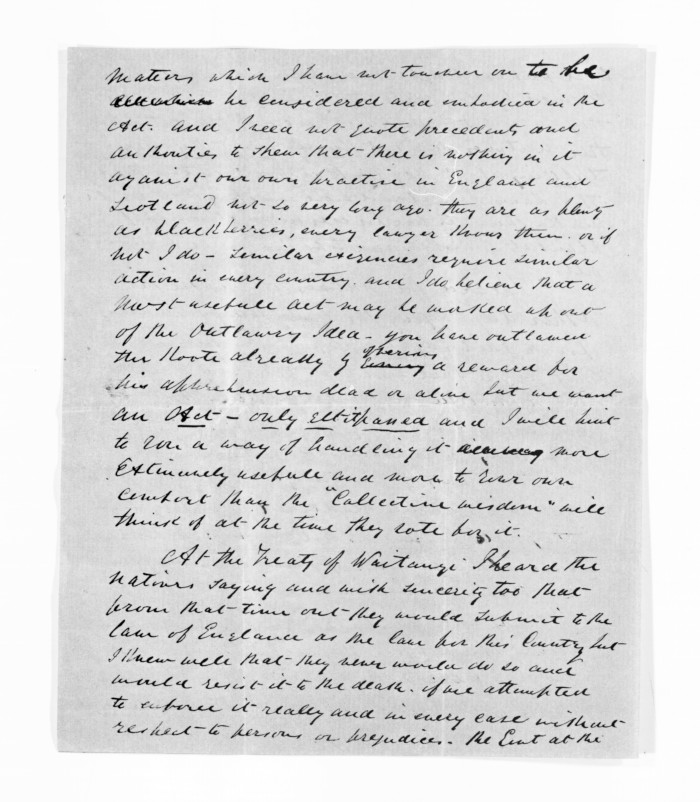 matters which I have not touched on to be
be considered and embodied in the
Act. and I need not quote precedents and
authorities to shew that there is nothing in it
against our own practise in England and
Scotland not so very long ago. they are as plenty
as blackberries, every lawyer knows them. or if
not I do – similar exigencies require similar
action in every country. and I do believe that a
most usefull act may be worked up out
of the Outlawry Idea – you have outlawed
Te Kooti already by offering a reward for
his apprehension dead or alive but we want
an Act – only get it passed and I will hint
to you a way of handling it more
Extensively usefull and more to your own
comfort than the "Collective wisdom" will
think of at the time they vote for it.
At the Treaty of Waitangi I heard the
natives saying and with sincerity too that
from that time out they would submit to the
law of England as the law for this Country but
I knew well that they never would do so and
would resist it to the death. if we attempted
to enforce it really and in every case without
respect to persons or prejudices – the Govt at the